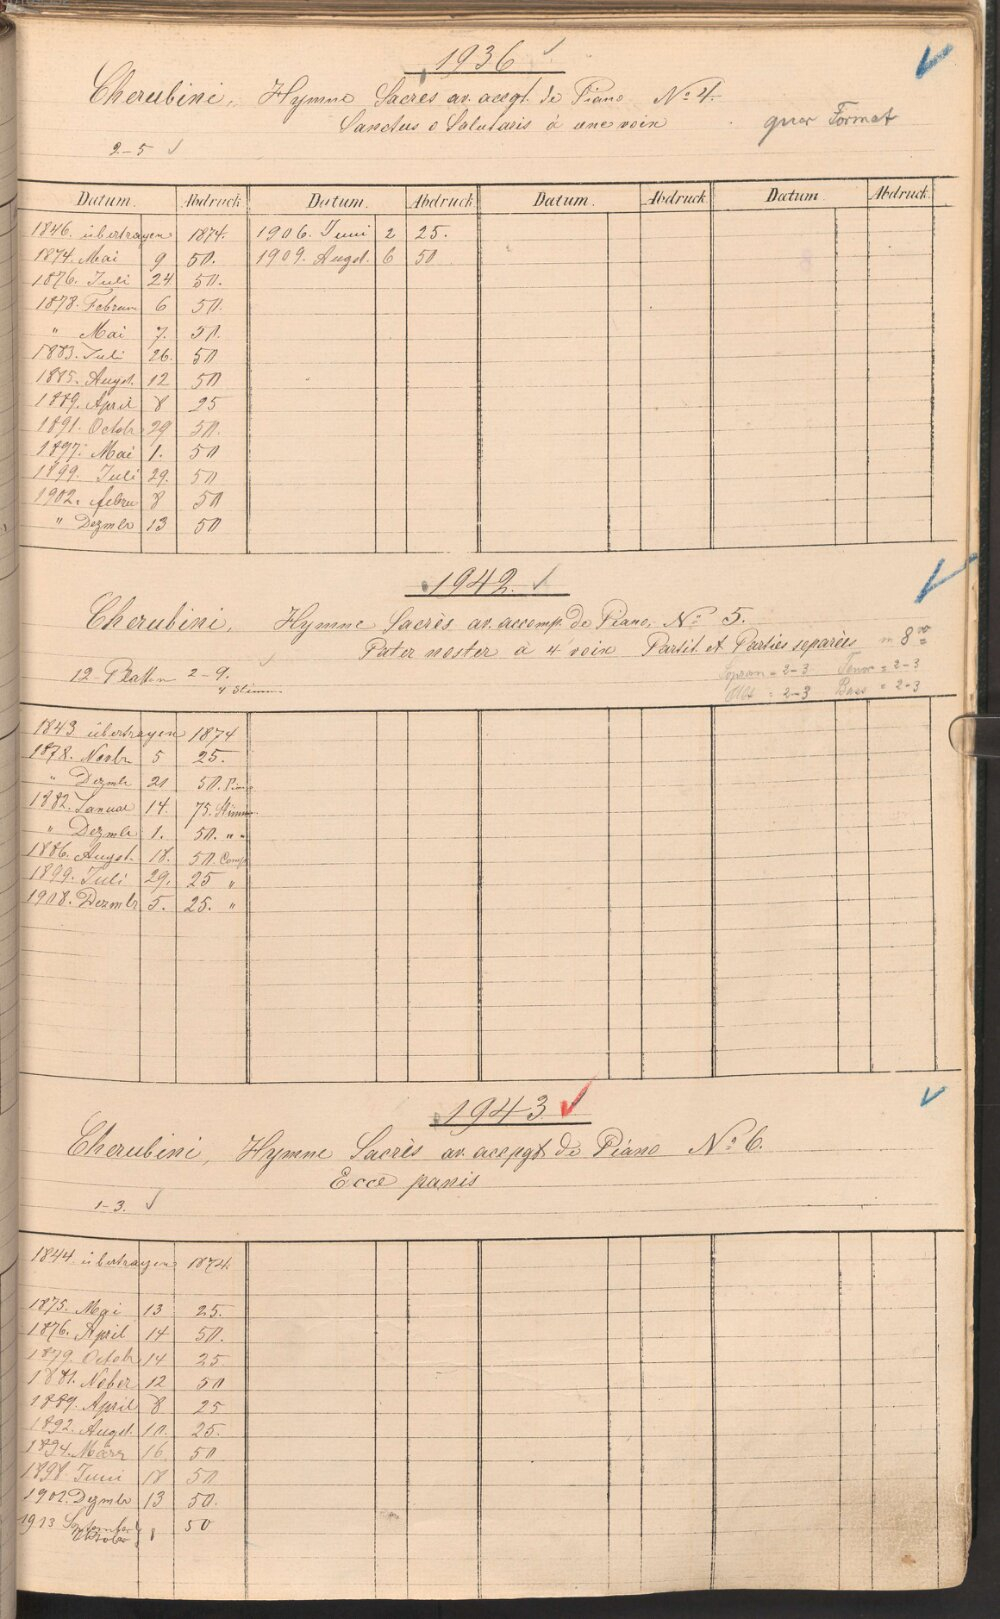 1936
Cherubini, Hymne Sacrès av. accgt. de Piano No 4.
Sanctus o Salutaris à une voix
quer Format
2-5
Datum. Abdruck Datum. Abdruck Datum. Abdruck Datum. Abdruck
1846. übertragen 1874. 1906. Juni 2 25.
1874. Mai 9 50. 1909. Augst. 6 50
1876. Juli 24 50.
1878. Februar 6 50.
" Mai 7. 50.
1883. Juli 26. 50
1885. Augst. 12 50
1889. April 8 25
1891. Octobr 29 50.
1897. Mai 1. 50
1899. Juli 29. 50
1902. Febru 8 50
" Dezmbr 13 50
1942.
Cherubini, Hymne Sacrès av. accomp. de Piano, No 5.
Pater noster à 4 voix Partit. et Parties separèes in 8vo
12 Platten 2-9.
4 Stimm
Sopran = 2-3 Tenor = 2-3
Alt = 2-3 Bass = 2-3
1843 übertragen 1874
1878. Novbr 5 25.
" Dezmbr 21 50.
1882. Januar 14. 75. Stimm.
" Dezmbr 1. 50. " "
1886. Augst. 18. 50. Compl
1899. Juli 29. 25 "
1908. Dezmbr 5. 25. "
1943
Cherubini, Hymne Sacrès av. accpgt de Piano No 6.
Ecce panis
1-3.
1844 übertragen 1874.
1875. Mai 13 25.
1876. April 14 50.
1879. Octobr 14 25
1881. Nober 12 50
1889. April 8 25
1892. Augst. 10. 25.
1894. März 16 50
1898. Juni 18 50
1902. Dezmbr 13 50.
1913 September 1 50
Oktober